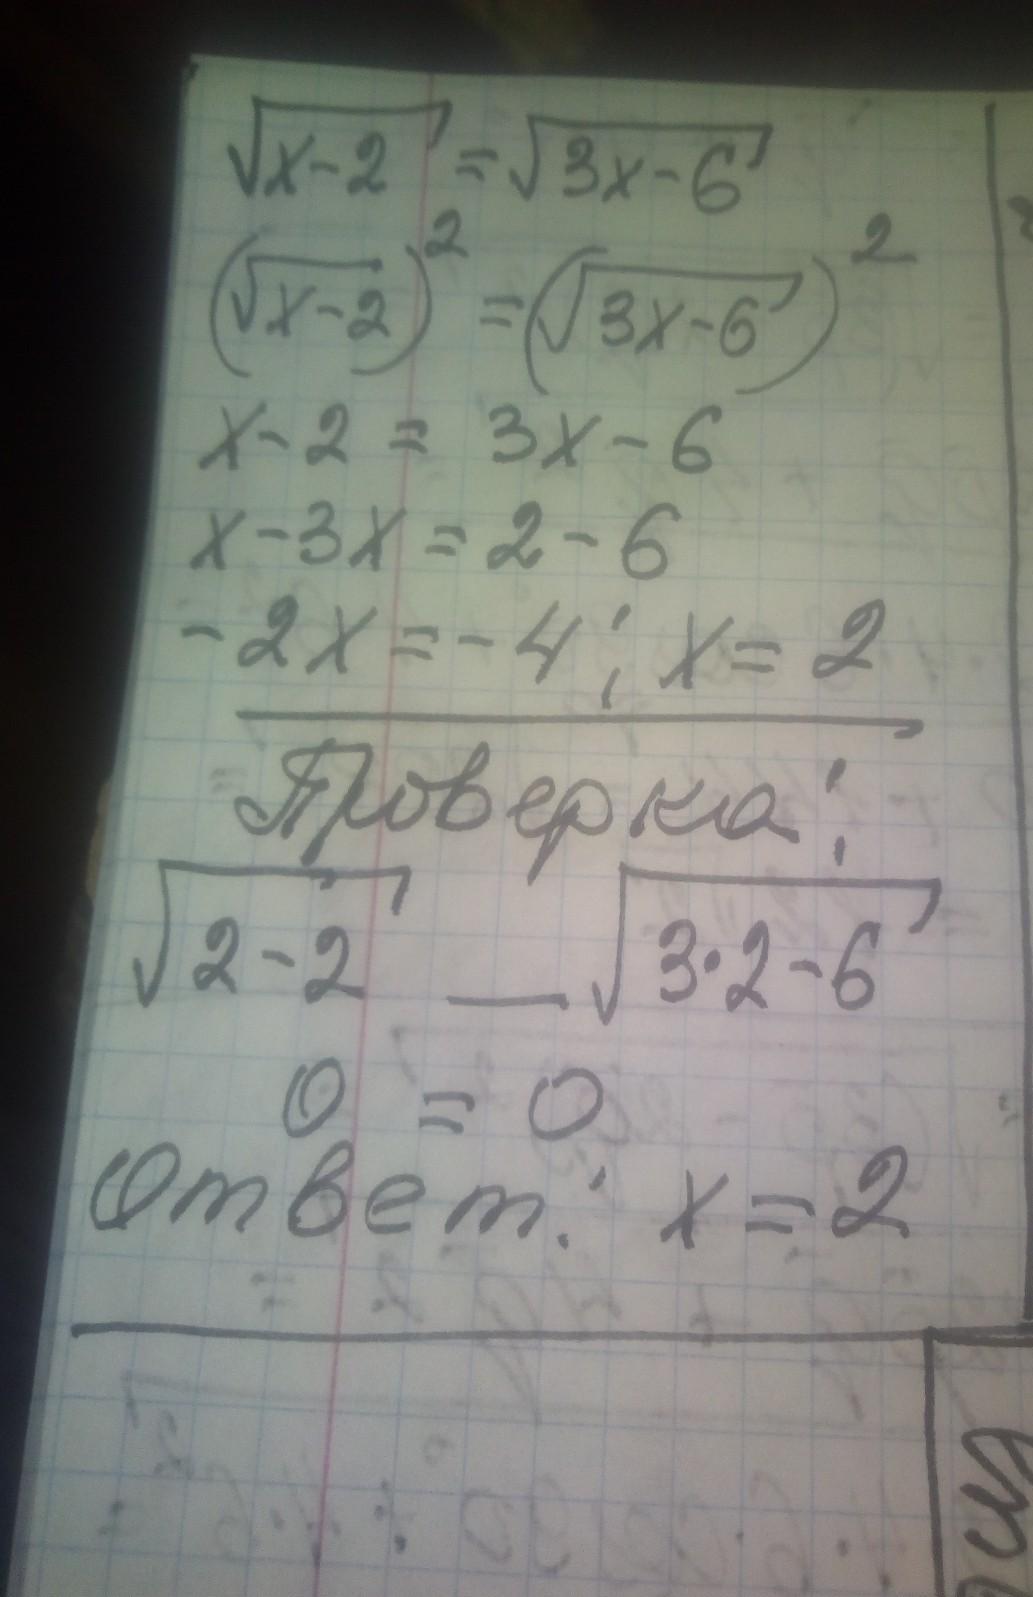 √x-2 = √3x-6
(√x-2)² = (√3x-6)²
x-2 = 3x-6
x-3x=2-6
-2x=-4; x=2
Проверка:
√2-2 __ √3·2-6
0 = 0
Ответ: x=2